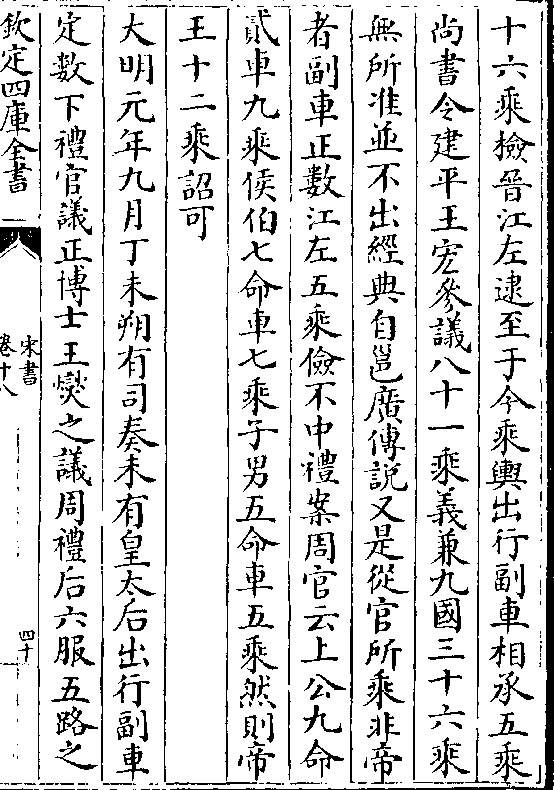 十六乘檢晉江左逮至于今乘輿出行副車相承五乘
尚書令建平王宏參議八十一乘義兼九國三十六乘
無所准並不出經典自邕廣傳説又是從官所乘非帝
者副車正數江左五乘儉不中禮案周官云上公九命
貳車九乘侯伯七命車七乘子男五命車五乘然則帝
王十二乘詔可
大明元年九月丁未朔有司奏未有皇太后出行副車
定數下禮官議正博士王燮之議周禮后六服五路之
欽定四庫全書
宋書
卷十八
四十